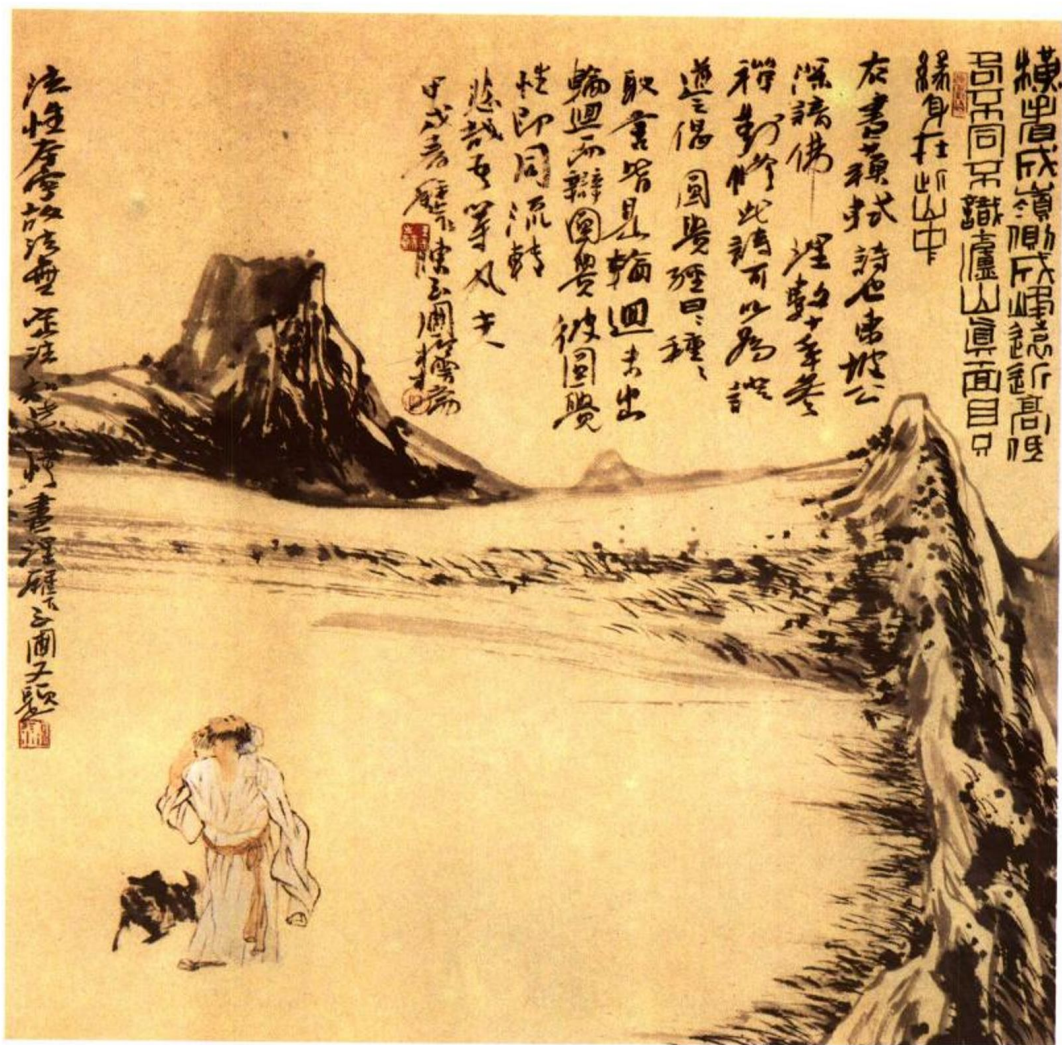 橫看成嶺側成峰遠近高低
各不同不識廬山眞面目只
緣身在此山中
右書蘇軾詩也東坡公
深諳佛理數十年參
禪對修此詩可以為證
道之偈圓覺經曰種種
取舍皆是輪迴未出
輪迴而辯圓覺彼圓覺
性即同流轉
悲哉吾等凡夫
甲戌春雁下陳玉圃於雲南
法性本空故法無定法知此畫理雁下玉圃又題